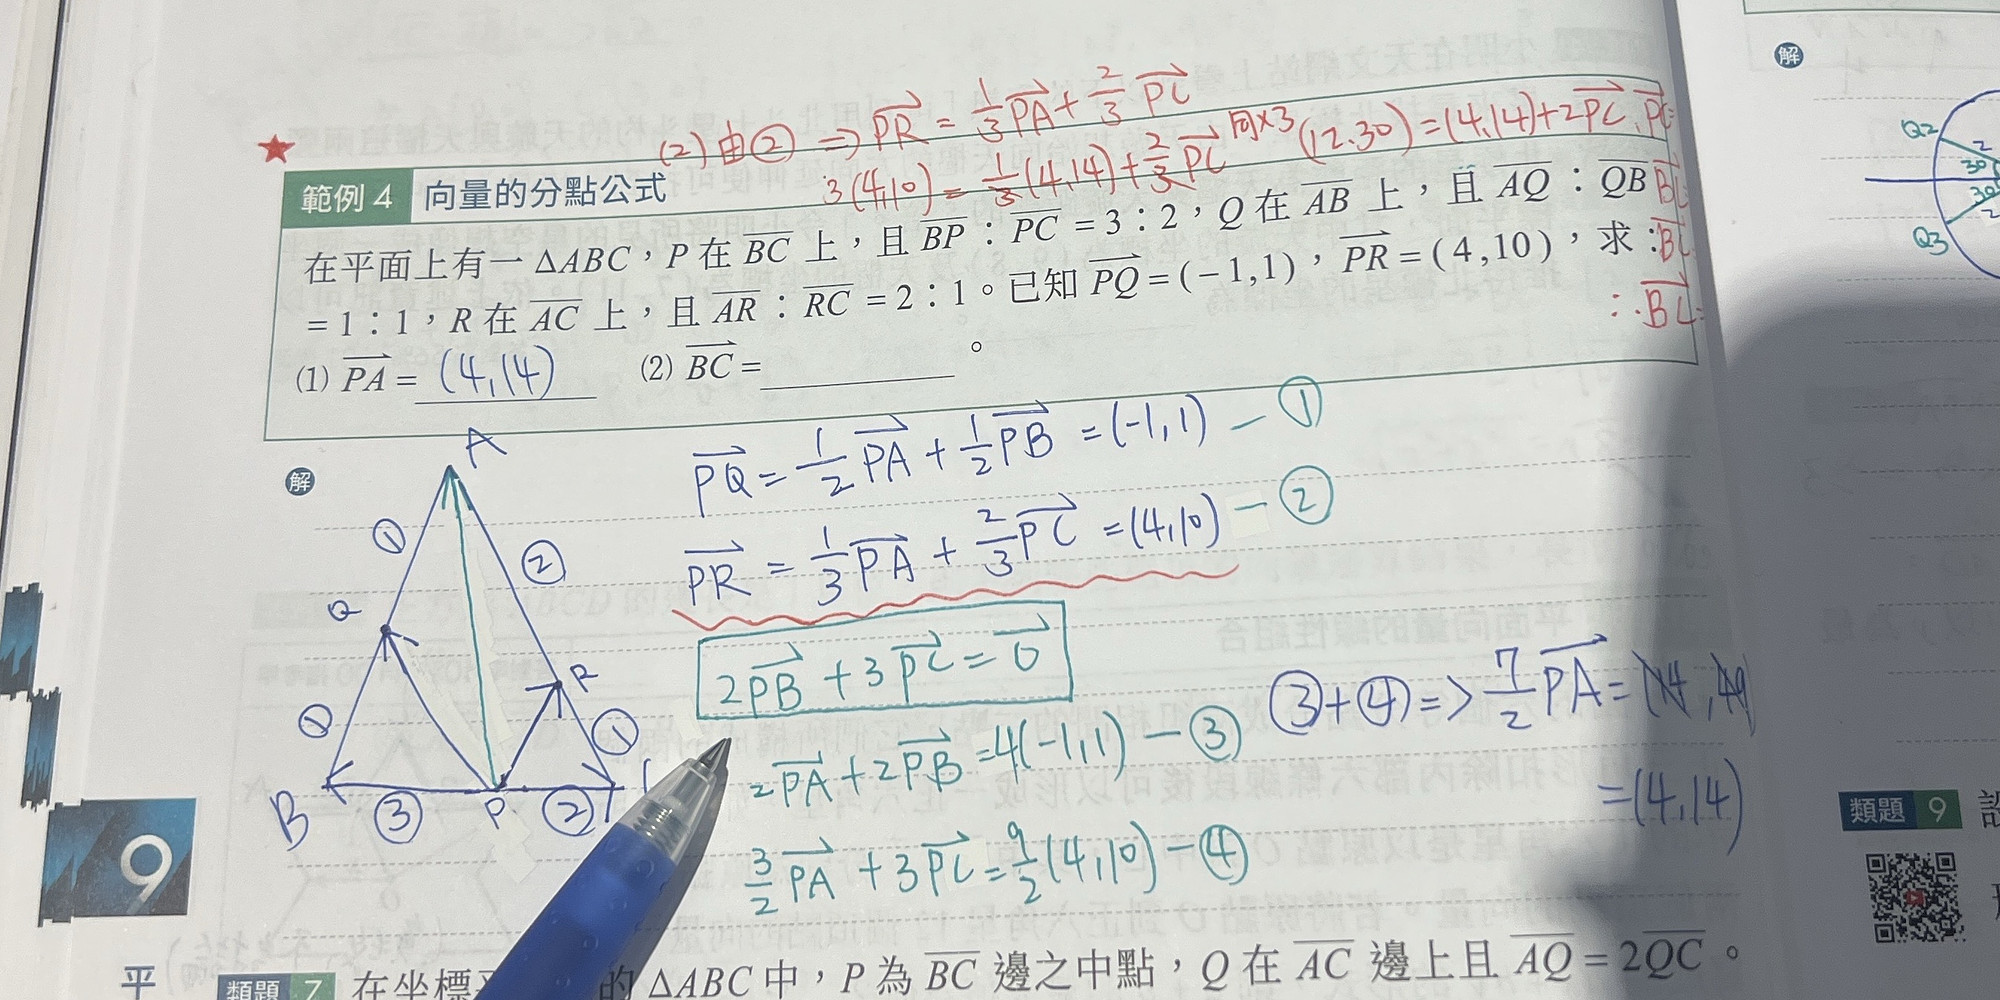 (2) 由② ⇒ PR = 1/3 PA + 2/3 PC
3(4,10) = 1/3(4,14) + 2/3 PC 同×3 (12.30) = (4,14) + 2PC
範例 4 向量的分點公式
在平面上有一 ΔABC，P 在 BC 上，且 BP：PC = 3：2，Q 在 AB 上，且 AQ：QB
= 1：1，R 在 AC 上，且 AR：RC = 2：1。已知 PQ = (-1,1)，PR = (4,10)，求：
(1) PA = (4,14) (2) BC = 。
∴BC
解
PQ = 1/2 PA + 1/2 PB = (-1,1) — ①
PR = 1/3 PA + 2/3 PC = (4,10) — ②
2PB + 3PC = 0
2PA + 2PB = 4(-1,1) — ③
3/2 PA + 3PC = 9/2 (4,10) — ④
③+④ => 7/2 PA = (14,49)
= (4,14)
A
① ②
Q R
① ①
B ③ P ②
9
平
類題 7 在坐標 的 ΔABC 中，P 為 BC 邊之中點，Q 在 AC 邊上且 AQ = 2QC。
解
Q2
2
30
30
2
Q3
類題 9